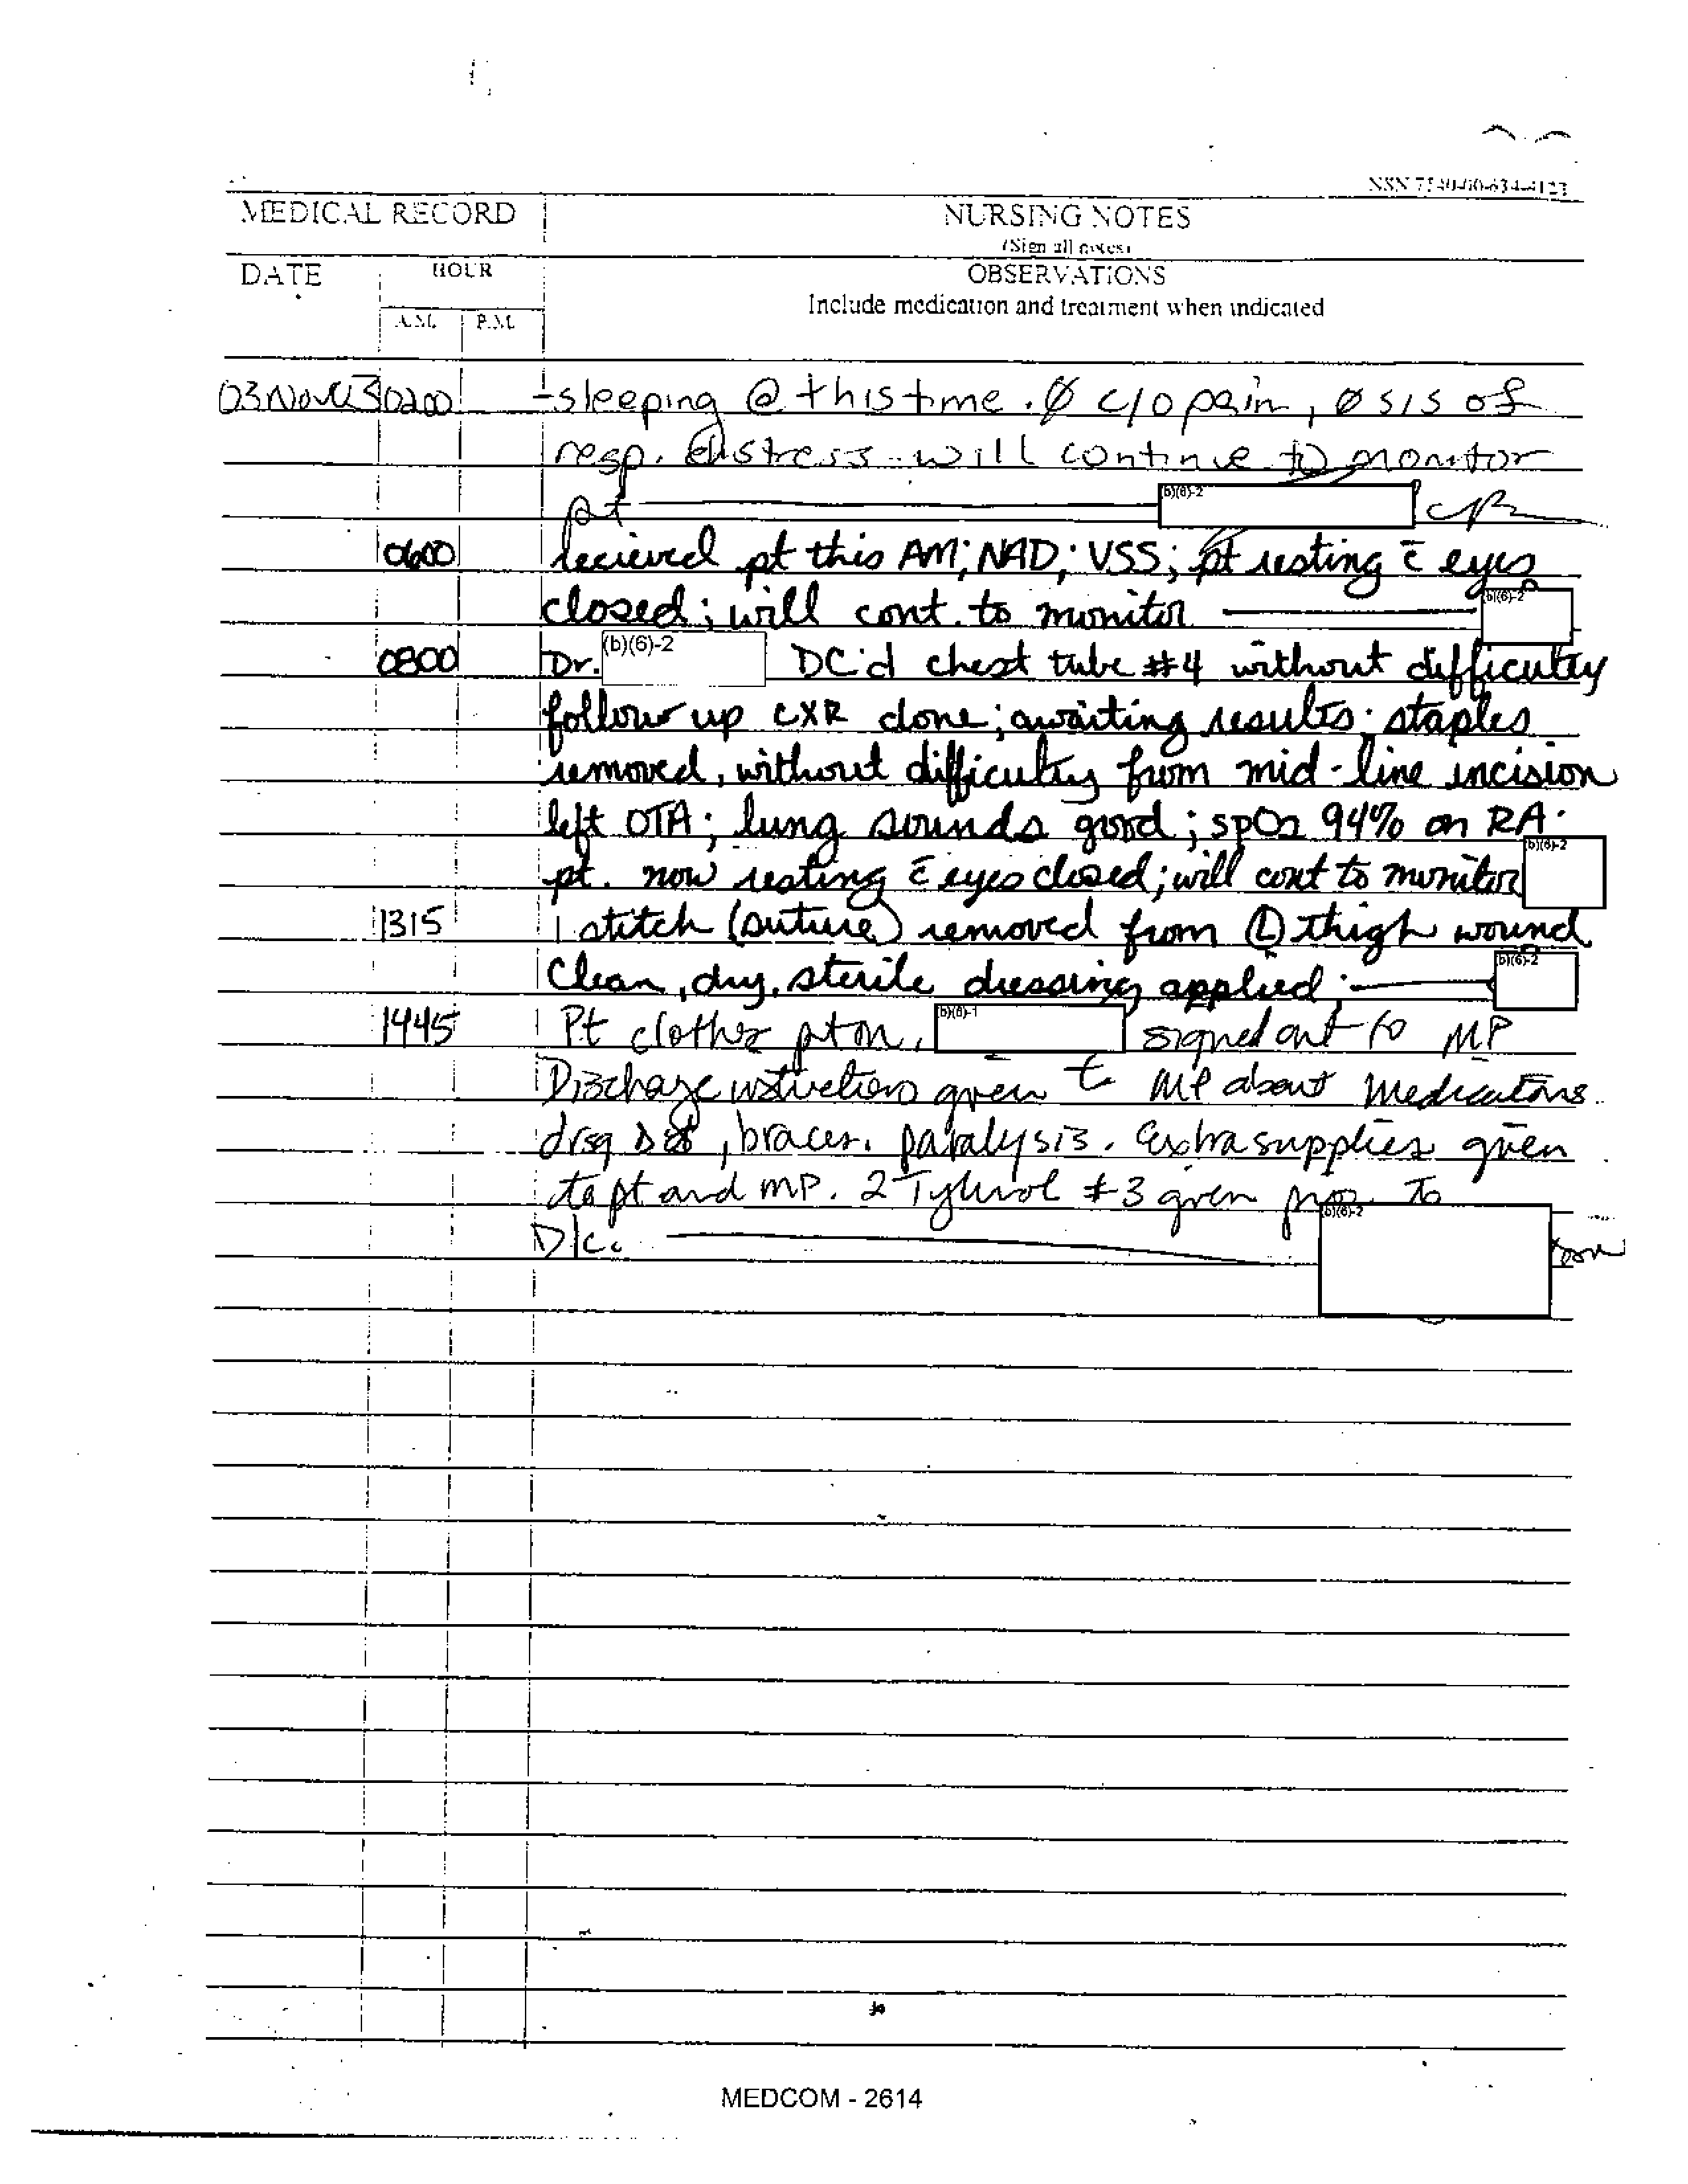 NSN 7540-00-634-4123
MEDICAL RECORD NURSING NOTES
(Sign all notes)
DATE HOUR OBSERVATIONS
Include medication and treatment when indicated
A.M. P.M.
03Nov03 0200 -sleeping @ this time. Ø c/o pain, Ø s/s of
resp. distress will continue to monitor
pt (b)(6)-2
0600 recieved pt this AM; NAD; VSS; pt resting c̄ eyes
closed; will cont. to monitor (b)(6)-2
0800 Dr. (b)(6)-2 DC'd chest tube #4 without difficulty
follow up CXR done; awaiting results; staples
removed, without difficulty from mid-line incision
left OTA; lung sounds good; spO2 94% on RA.
pt. now resting c̄ eyes closed; will cont to monitor (b)(6)-2
1315 1 stitch (suture) removed from Ⓛ thigh wound
Clean, dry, sterile dressing applied; (b)(6)-2
1445 Pt clothes on, (b)(6)-1 signed out to MP
Discharge instructions given to MP about Medications
drsg, braces, paralysis. Extra supplies given
to pt and MP. 2 Tylenol #3 given prior to
D/C. (b)(6)-2
MEDCOM - 2614